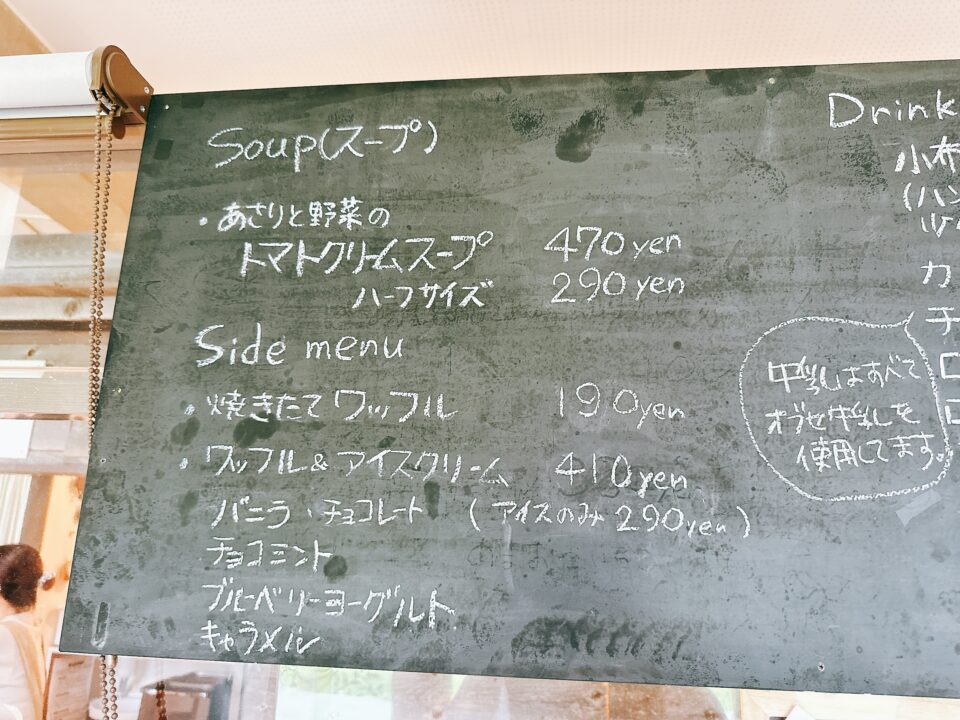 Soup(スープ)
・あさりと野菜の
トマトクリームスープ 470yen
ハーフサイズ 290yen
Side menu
・焼きたてワッフル 190yen
・ワッフル&アイスクリーム 410yen
バニラ・チョコレート (アイスのみ 290yen)
チョコミント
ブルーベリーヨーグルト
キャラメル
Drink
小布
(ハン
カ
チ
牛乳はすべて
オブセ牛乳を
使用してます。